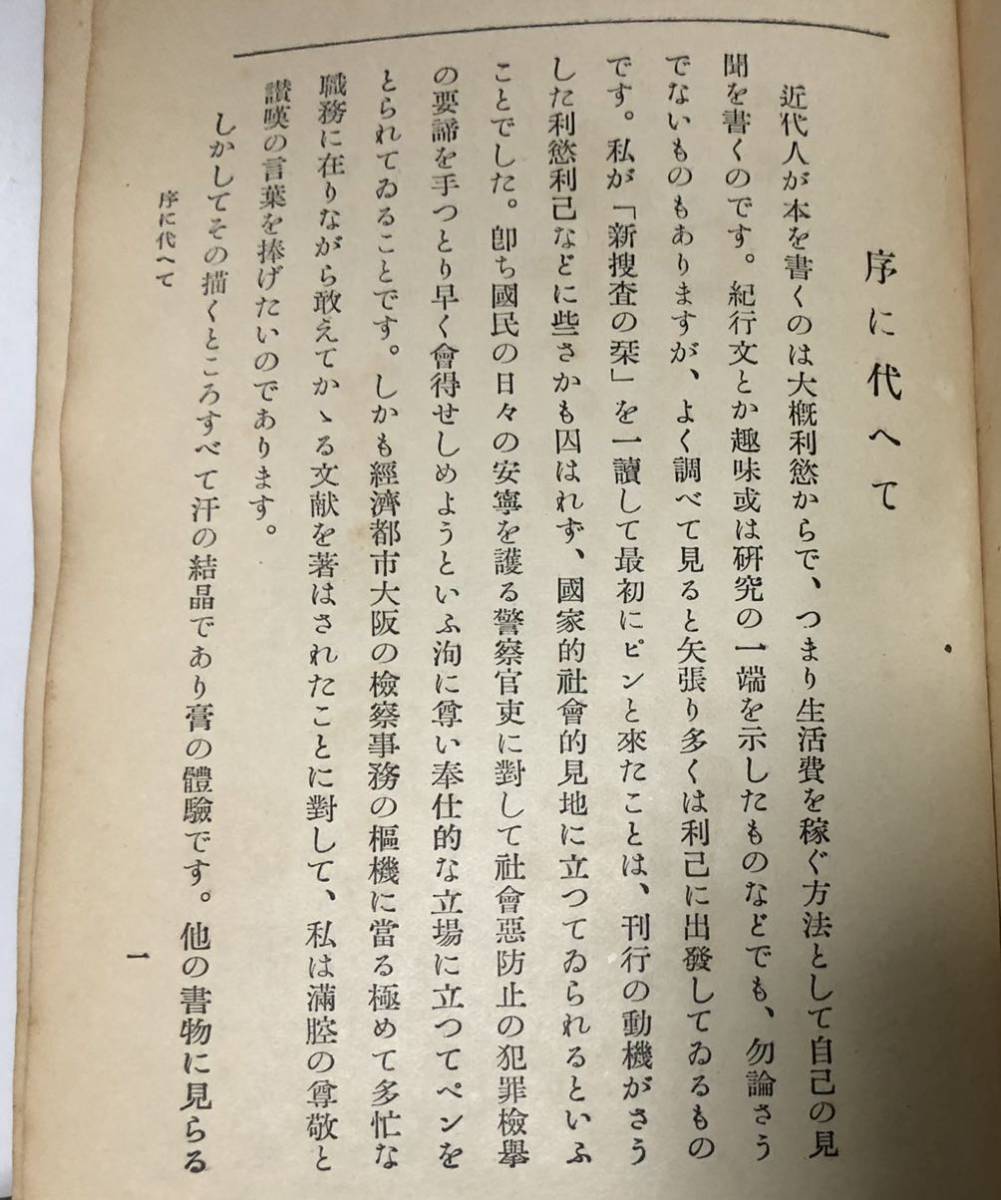 序に代へて
近代人が本を書くのは大槪利慾からで、つまり生活費を稼ぐ方法として自己の見
聞を書くのです。紀行文とか趣味或は硏究の一端を示したものなどでも、勿論さう
でないものもありますが、よく調べて見ると矢張り多くは利己に出發してゐるもの
です。私が「新搜査の栞」を一讀して最初にピンと來たことは、刊行の動機がさう
した利慾利己などに些さかも囚はれず、國家的社會的見地に立つてゐられるといふ
ことでした。卽ち國民の日々の安寧を護る警察官吏に對して社會惡防止の犯罪檢擧
の要諦を手つとり早く會得せしめようといふ洵に尊い奉仕的な立場に立つてペンを
とられてゐることです。しかも經濟都市大阪の檢察事務の樞機に當る極めて多忙な
職務に在りながら敢えてかゝる文献を著はされたことに對して、私は滿腔の尊敬と
讃嘆の言葉を捧げたいのであります。
しかしてその描くところすべて汗の結晶であり膏の體驗です。他の書物に見らる
序に代へて
一